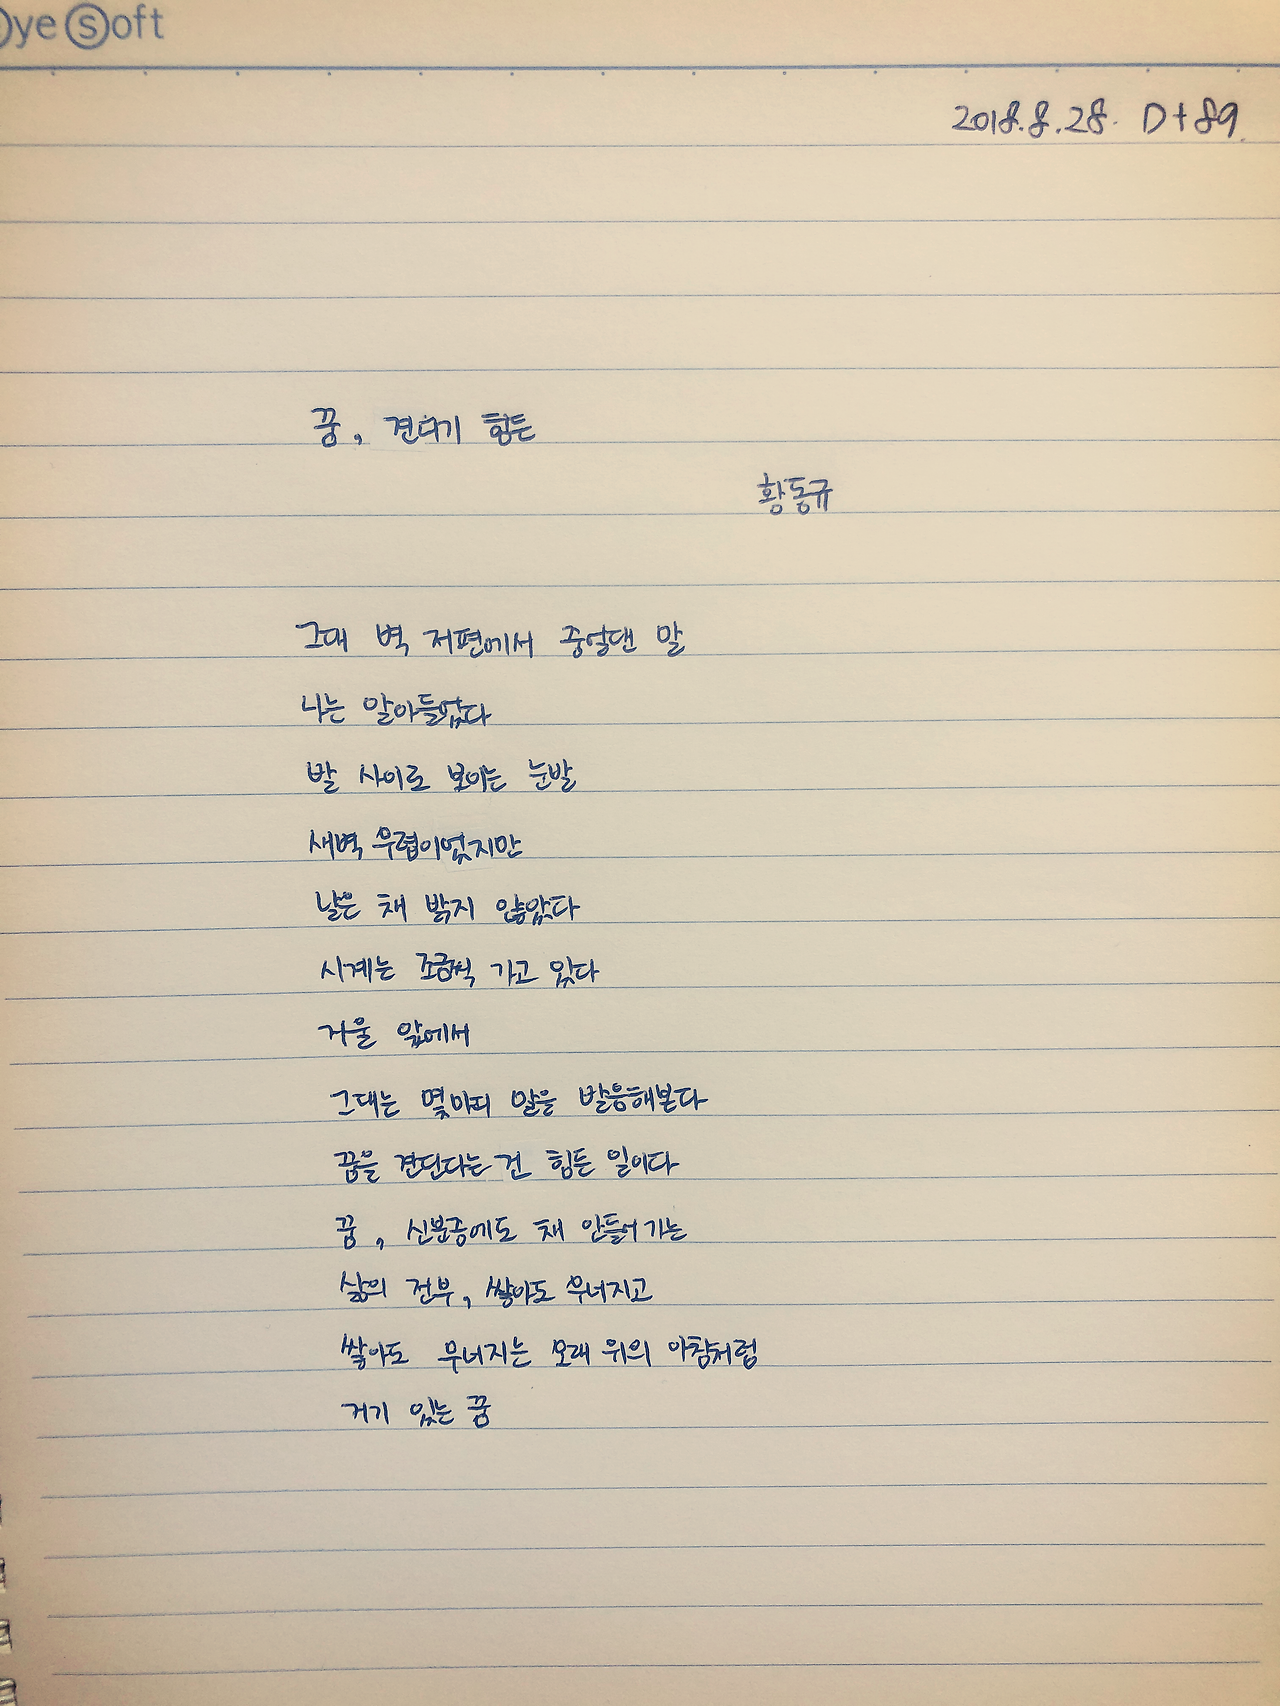 ye Soft
2018.8.28. D+89.
꿈, 견디기 힘든
황동규
그대 벽 저편에서 중얼댄 말
나는 알아들었다
발 사이로 보이는 눈발
새벽 무렵이었지만
날은 채 밝지 않았다
시계는 조금씩 가고 있다
거울 앞에서
그대는 몇마디 말을 발음해본다
꿈을 견딘다는 건 힘든 일이다
꿈, 신분증에도 채 안들어가는
삶의 전부, 쌓아도 무너지고
쌓아도 무너지는 모래 위의 아침처럼
거기 있는 꿈